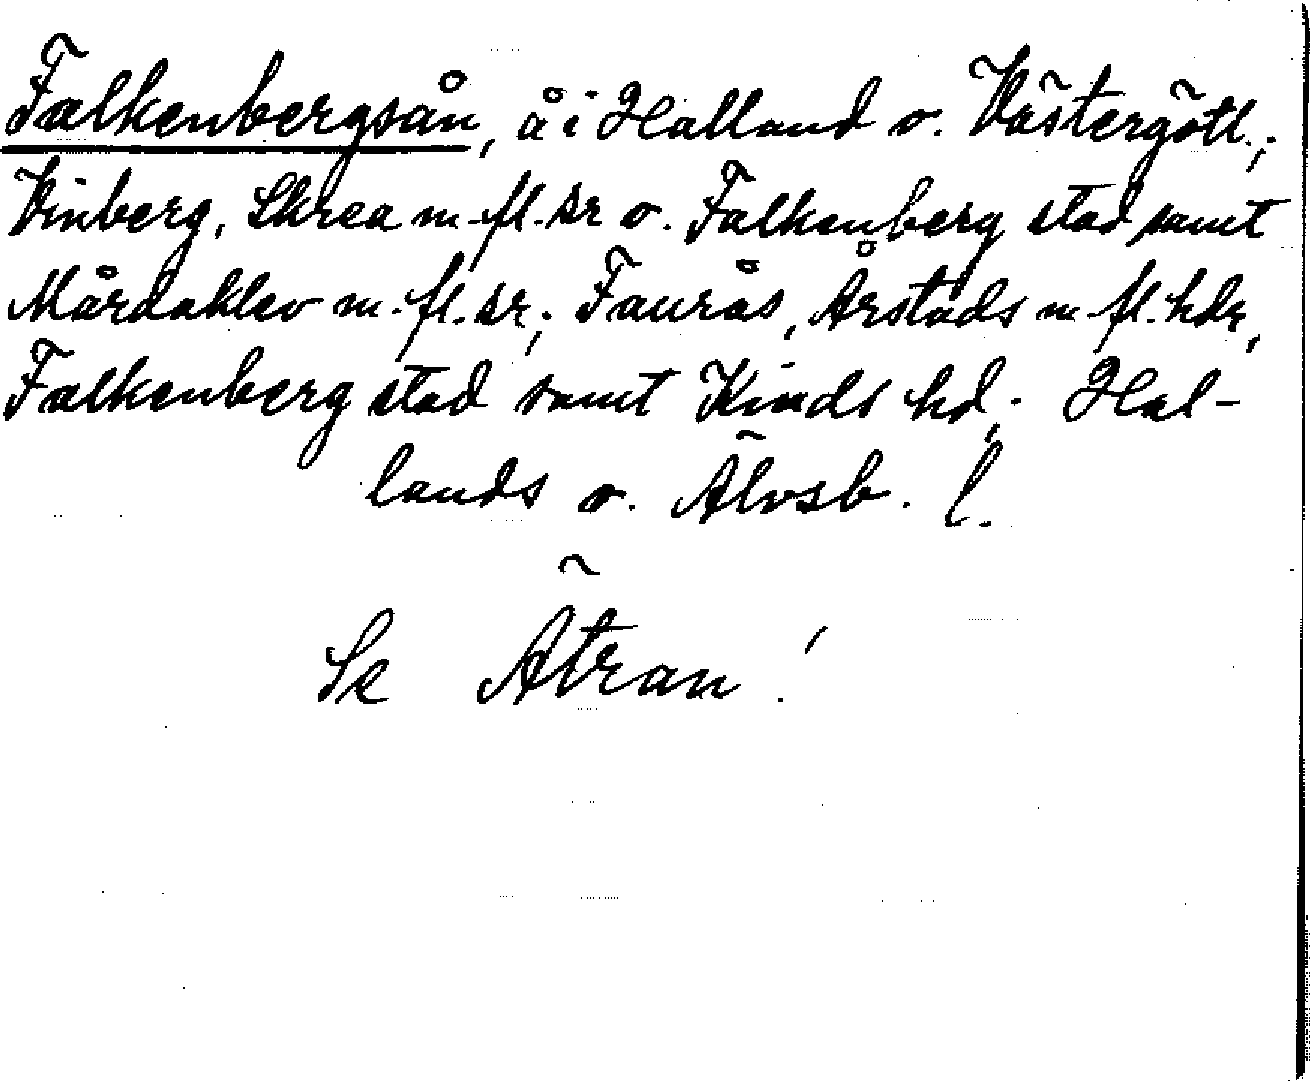 Falkenbergsån, å i Halland o. Västergötl.;
Vinberg, Skrea m. fl. snr o. Falkenberg stad samt
Mårdaklev m. fl. snr; Faurås, Årstads m. fl. hdr,
Falkenberg stad samt Kinds hd; Hal-
lands o. Älvsb. l.
Se Ätran!